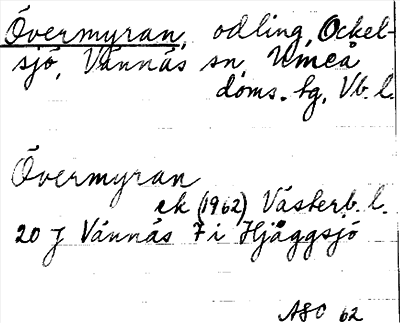 Övermyran, odling, Ockel-
sjö, Vännäs sn, Umeå
doms. hg, Vb. l.
Övermyran
ek (1962) Västerb. l.
20 J Vännäs 7 i Hjåggsjö
ASO 62